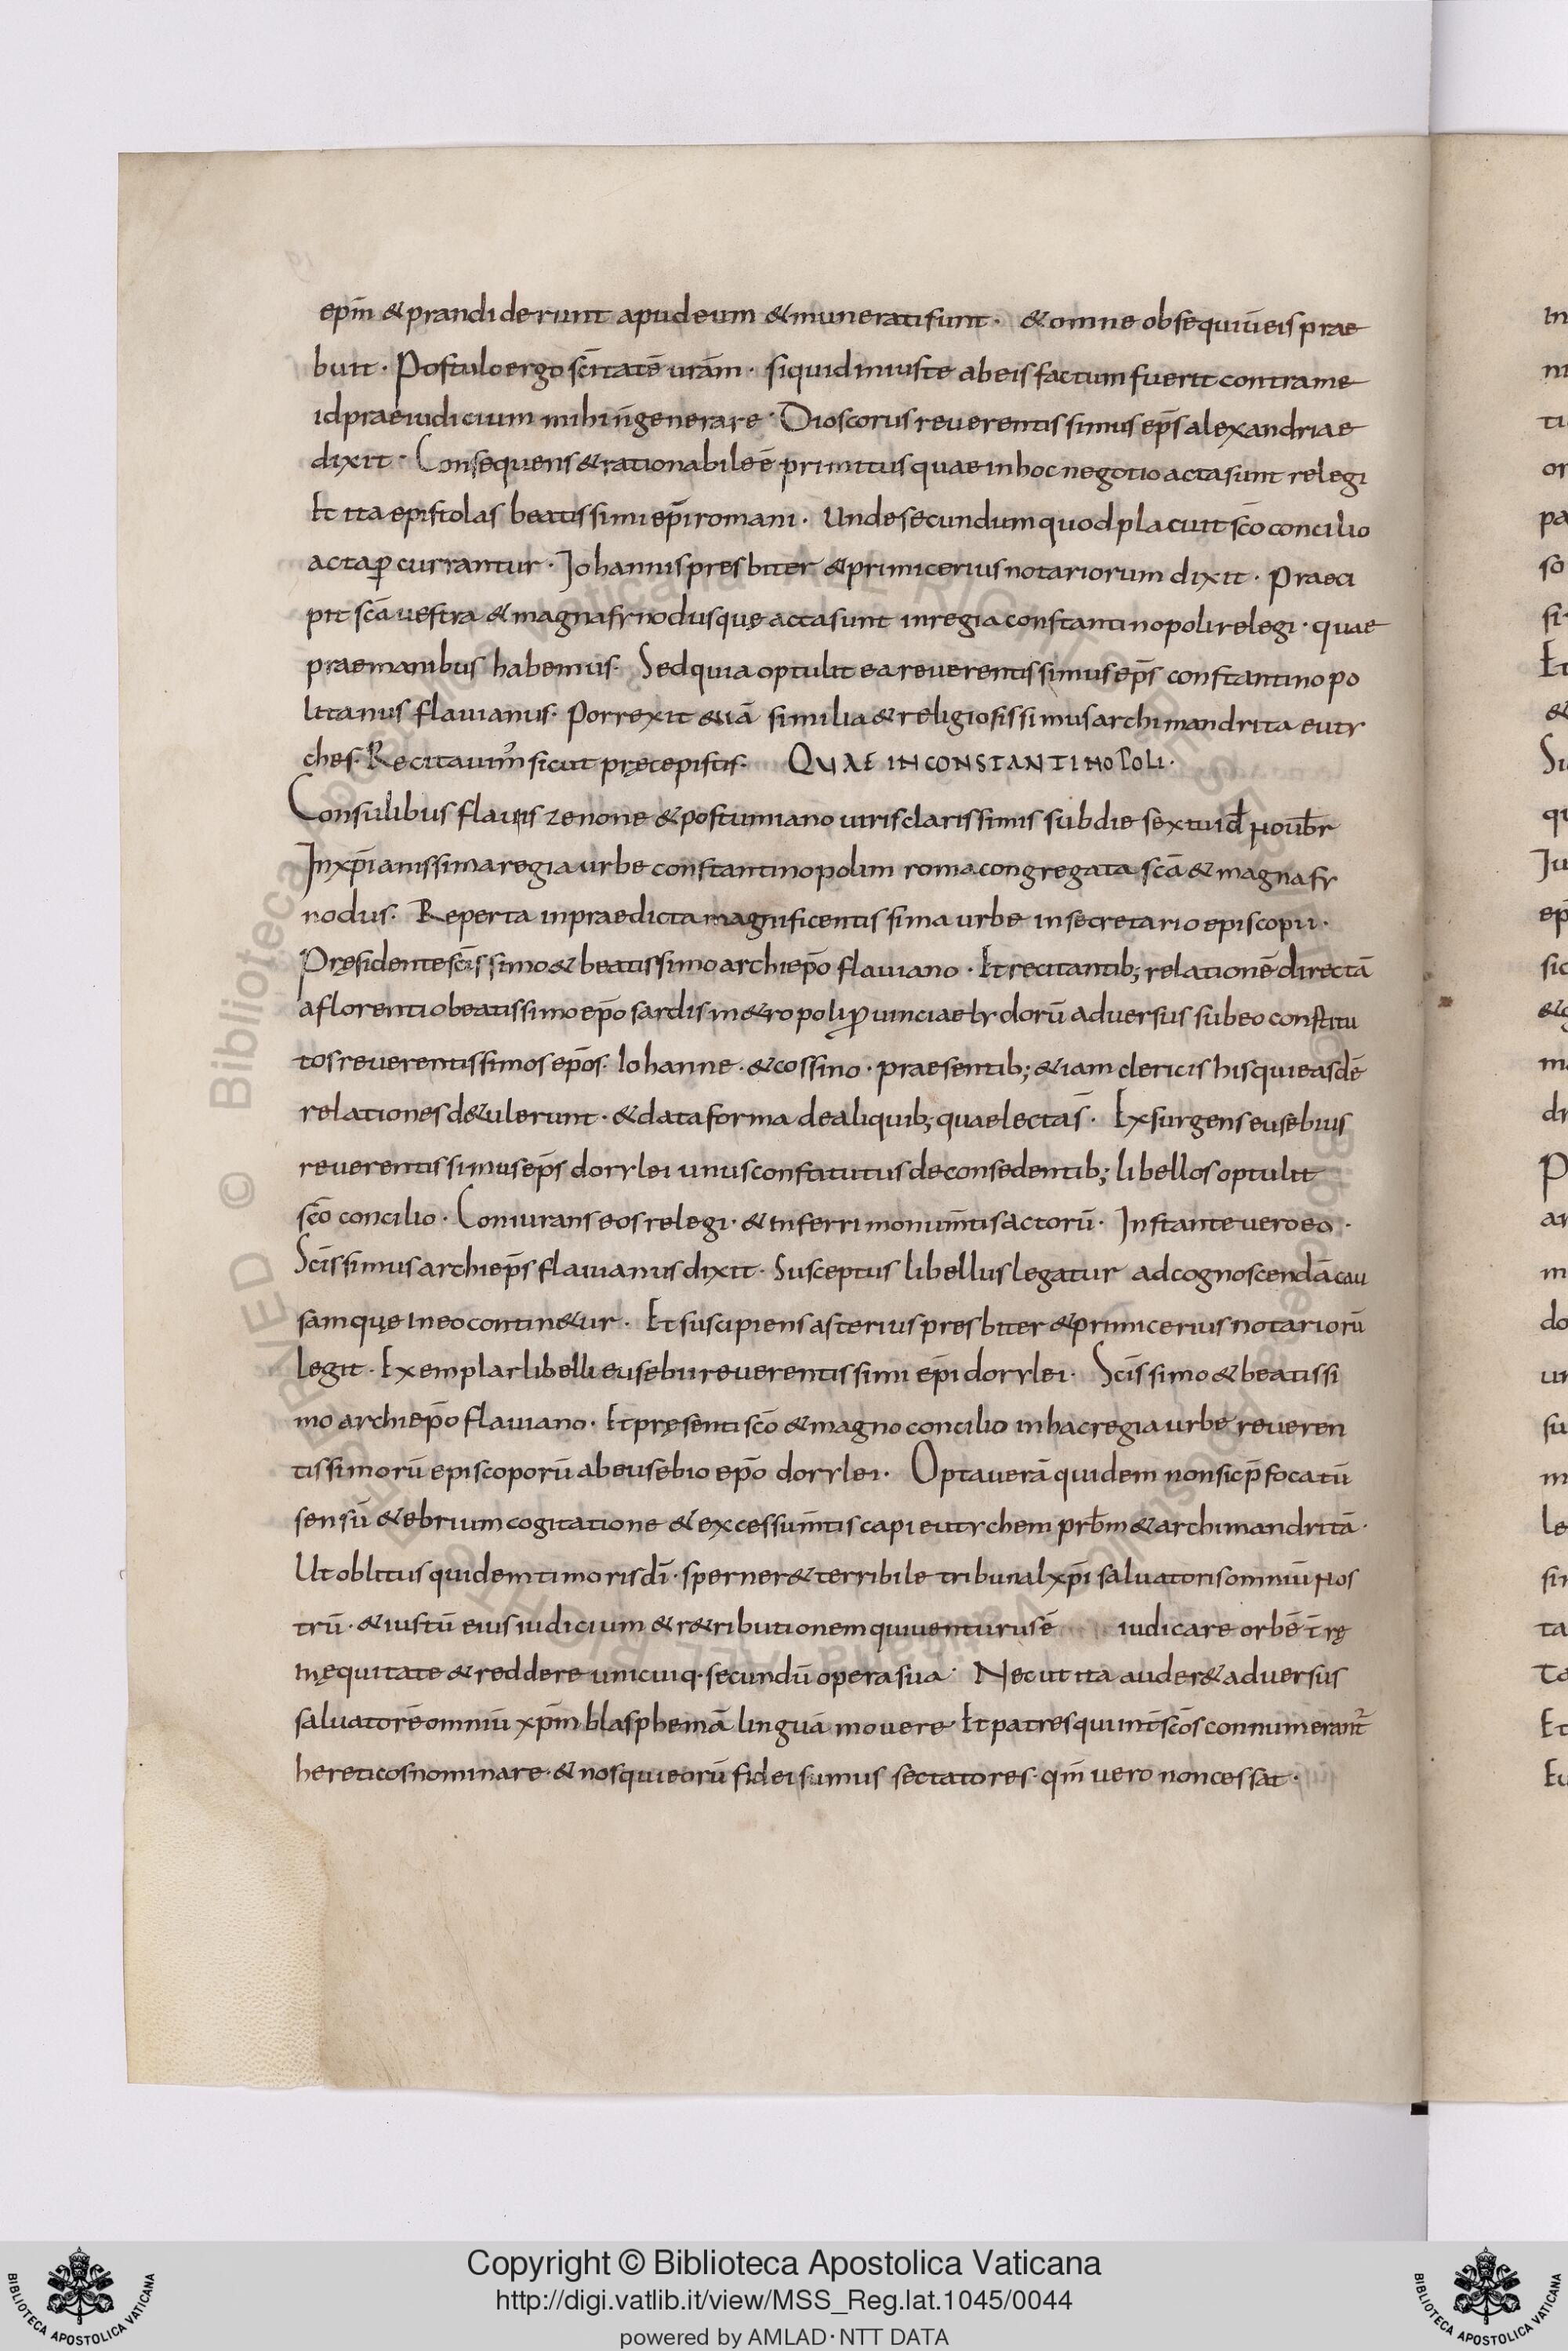 ep̄m & prandiderunt apud eum & munerati sunt · & omne obsequiū eis prae
buit · Postulo ergo sc̄itatē urām · siquid iniuste ab eis factum fuerit contra me
id praeiudicium mihi n̄ generare · Dioscorus reuerentissimus ep̄s alexandriae
dixit · Consequens & rationabile ē primitus quae in hoc negotio acta sunt relegi
Et ita epistolas beatissimi ep̄i romani · Unde secundum quod placuit sc̄o concilio
acta ꝑcurrantur · Johannis presbiter & primicerius notariorum dixit · Praeci
pit sc̄a uestra & magna synodus quę acta sunt in regia constantinopoli relegi · quae
prae manibus habemus · Sed quia optulit ea reuerentissimus ep̄s constantinopo
litanus flauianus · Porrexit &iā similia & religiosissimus archimandrita euty
ches · Recitauim̄ sicut pręcepistis · QUAE IN CONSTANTINOPOLI ·
Consulibus flauiis zenone & postumiano uiris clarissimis sub die sextu id̄ Noub̄r
In xp̄ianissima regia urbe constantinopolim roma congregata sc̄a & magna sy
nodus · Reperta in praedicta magnificentissima urbe in secretario episcopii ·
Pręsidente sc̄issimo & beatissimo archiep̄o flauiano · Et recitantib; relationē directā
a florentio beatissimo ep̄o sardis m&ropoli ꝓuinciae lydorū aduersus sub eo constitu
tos reuerentissimos ep̄os · Iohanne · & cossino · praesentib; &iam clericis his qui easdē
relationes d&ulerunt · & data forma de aliquib; quae lecta s̄ · Exsurgens eusebius
reuerentissimus ep̄s dorylei unus constitutus de consedentib; libellos optulit
sc̄o concilio · Coniurans eos relegi · & inferri monum̄tis actorū · Instante uero eo ·
Sc̄issimus archiep̄s flauianus dixit · Susceptus libellus legatur ad cognoscendā cau
sam quę in eo contin&ur · Et suscipiens asterius presbiter & primicerius notariorū
legit · Exemplar libelli eusebii reuerentissimi ep̄i dorylei · Sc̄issimo & beatissi
mo archiep̄o flauiano · Et pręsenti sc̄o & magno concilio in hac regia urbe reueren
tissimorū episcoporū ab eusebio ep̄o dorylei · Optauerā quidem non sic p̄focatū
sensū & ebrium cogitatione & excessum̄tis capi eutychem prb̄m & archimandritā ·
Ut oblitus quidem timoris dī · sperner& terribile tribunal xp̄i saluatoris omniū Nos
trū · & iustū eius iudicium & r&ributionem qui uenturus ē iudicare orbē t̄rę
in ęquitate & reddere unicuiq· secundū opera sua · Nec ut ita auder& aduersus
saluatorē omniū xp̄m blasphemā linguā mouere · Et patres qui int̄ sc̄os connumerant̄
hereticos nominare · & nos qui eorū fidei sumus sectatores · qm̄ uero non cessat ·
Copyright © Biblioteca Apostolica Vaticana
http://digi.vatlib.it/view/MSS_Reg.lat.1045/0044
powered by AMLAD · NTT DATA